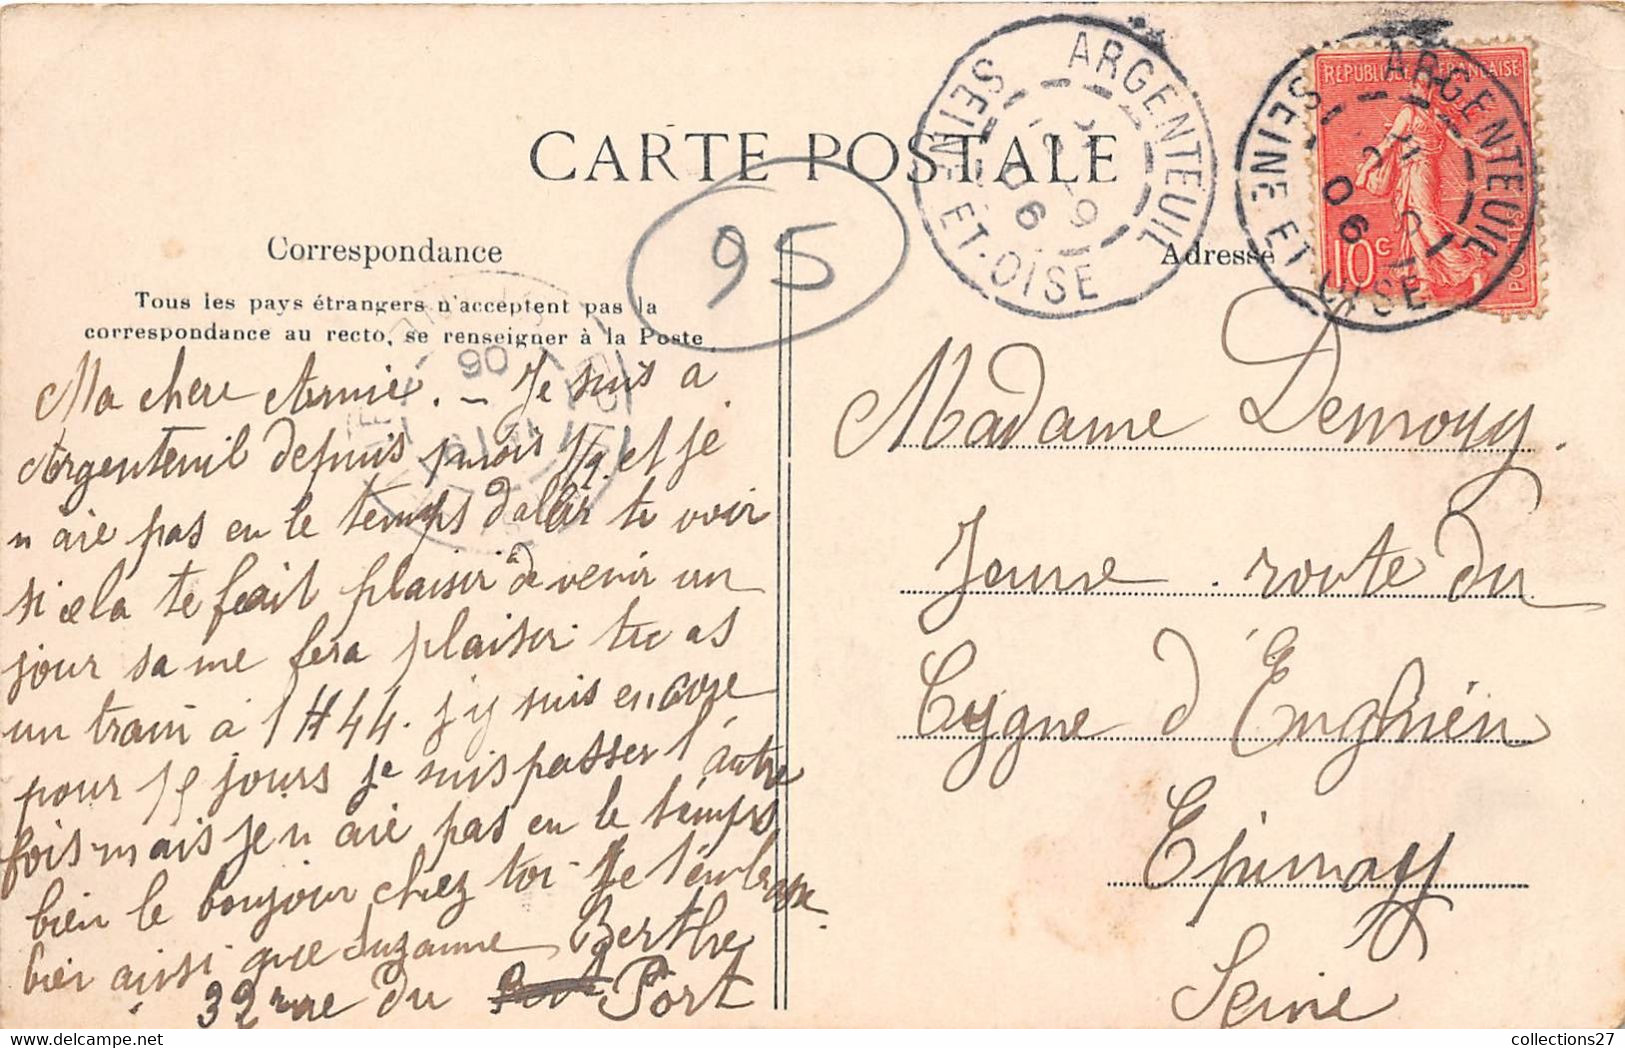 CARTE POSTALE
95
ARGENTEUIL
SEINE ET-OISE
06
ARGENTEUIL
SEINE ET OISE
06
RÉPUBLIQUE FRANÇAISE
10c
POSTES
Correspondance
Tous les pays étrangers n'acceptent pas la
correspondance au recto, se renseigner à la Poste
06
Ma chere Armie. – Je suis a
Argenteuil depuis 1 mois 1/2 et je
n aie pas eu le temps d aller te voir
si cela te ferait plaisir de venir un
jour sa me fera plaisir tu as
un train à 1 H 44. j y suis encore
pour 15 jours je suis passer l'autre
fois mais je n aie pas eu le temps
bien le bonjour chez toi Je t'embrasse
bien ainsi que Suzanne Berthe
32 rue du Port
Adresse
Madame Demouy.
Jeune route du
Cygne d'Enghien
Epinay
Seine
collections27